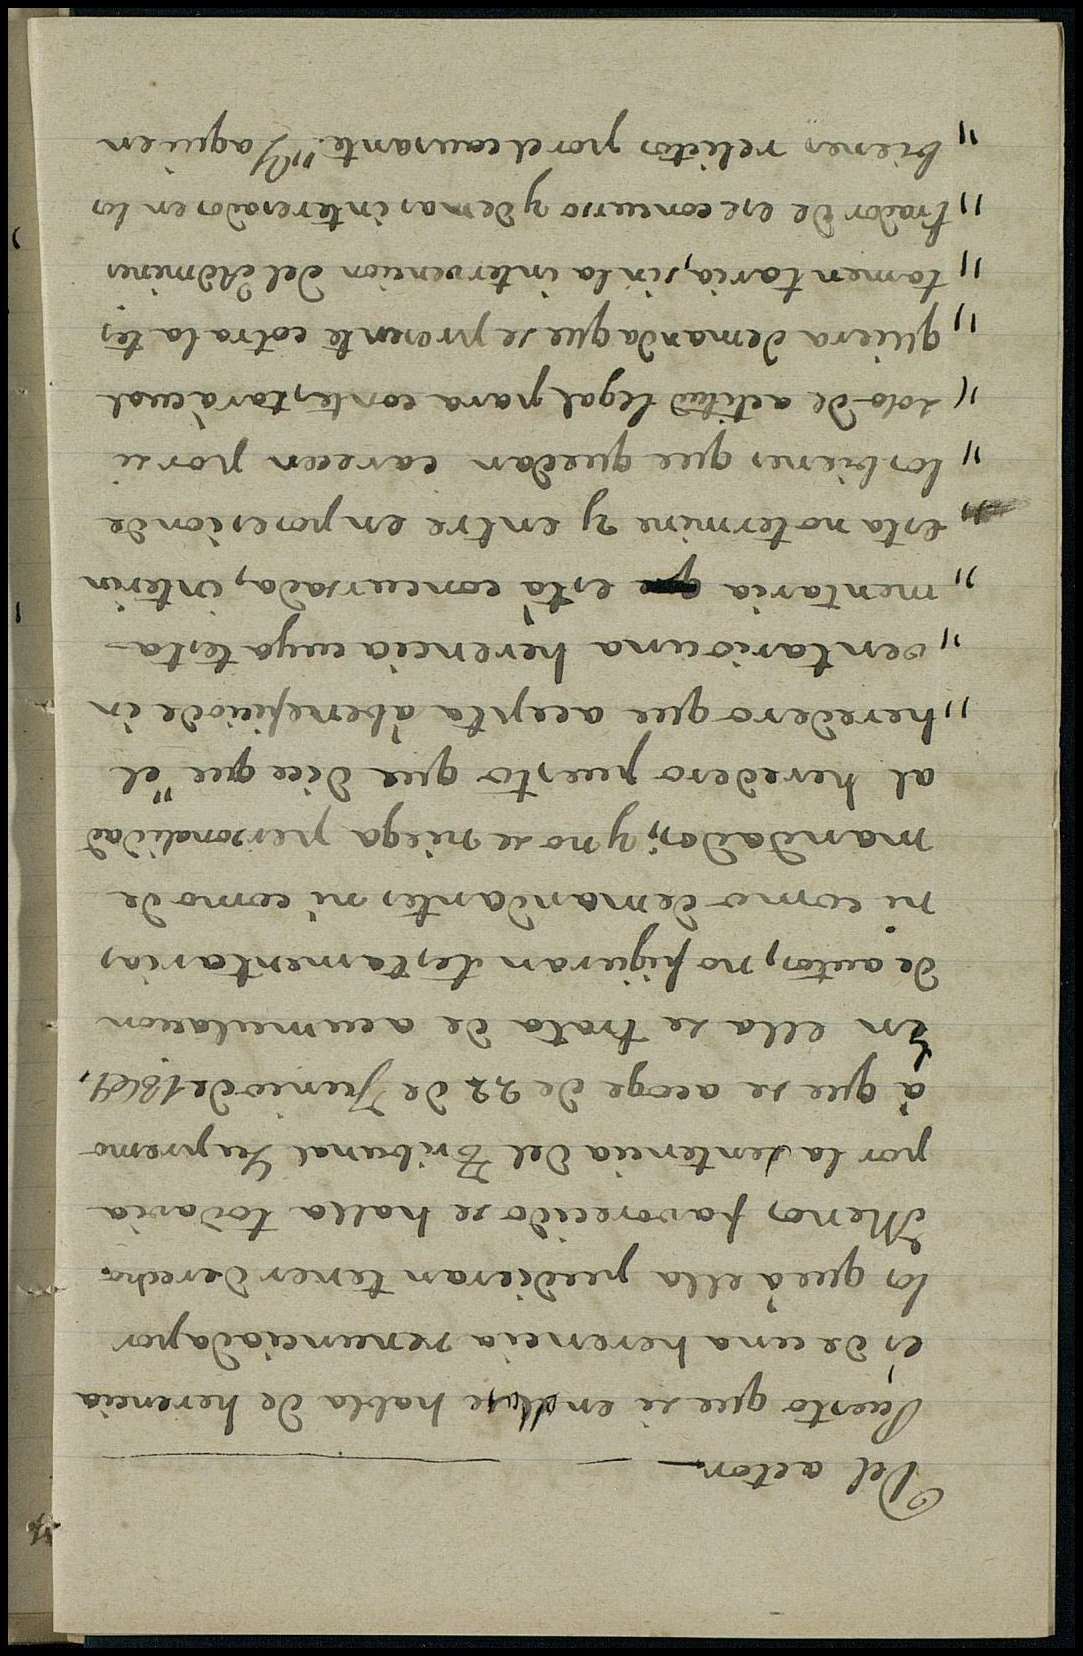 Del actor. —
Puesto que si en ella se habla de herencia
es de una herencia renunciada por
los que à ella pudieran tener derecho.
Menos favorecido se halla todavia
por la sentencia del Tribunal Supremo
à que se acoge de 22 de Junio de 1861,
En ella se trata de acumulacion
de autos, no figuran testamentarias
ni como demandantes ni como de
mandados; y no se niega personalidad
al heredero puesto que dice que "el
" heredero que acepta àbeneficio de in
" ventario una herencia cuya testa-
" mentaria està concursada, interin
" esta no termine y entre en posesion de
" los bienes que quedan carecen por si
" solo de actitud legal para contestar à cual
" quiera demanda que se presente cotra la tes
" tamentaria, sin la intervencion del Adminis
" trador de ese concurso y demas interesados en los
" bienes relictos por el causante." Y aqui en